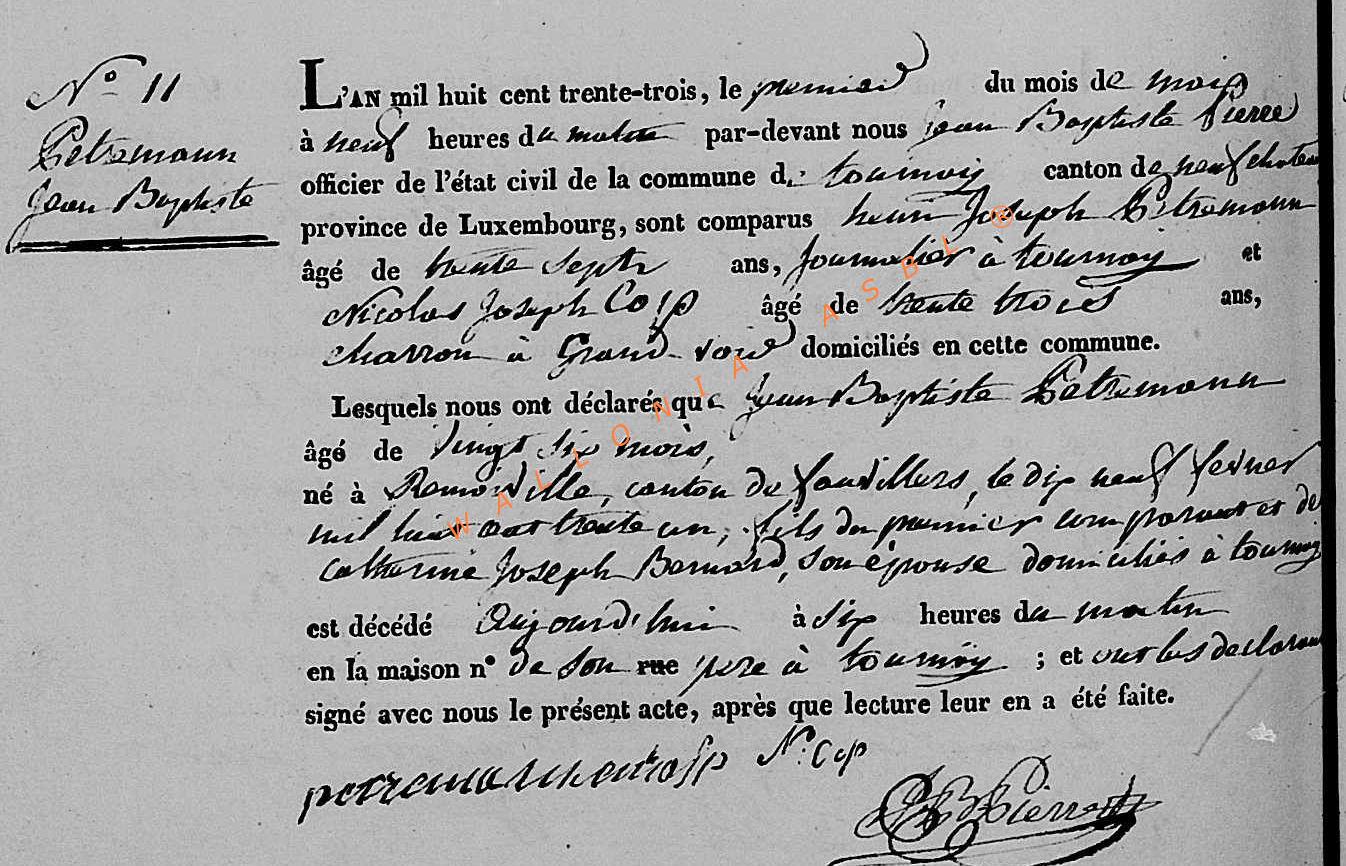 N° 11
Petremann
Jean Baptiste
L'AN mil huit cent trente-trois, le premier du mois de mois
à neuf heures du matin par-devant nous Jean Baptiste Pierre
officier de l'état civil de la commune de tournay canton de neufchateau
province de Luxembourg, sont comparus henri Joseph Petremann
âgé de trente sept ans, journalier à tournay et
Nicolas Joseph âgé de trente trois ans,
charron à Grand-voir domiciliés en cette commune.
Lesquels nous ont déclarés que Jean Baptiste Petremann
âgé de vingt six mois,
né à Remoiville, canton de fauvillers, le dix neuf fevrier
mil huit cent trente un, fils du premier comparant et de
Catherine Joseph Bernard, son épouse domiciliés à tournay
est décédé aujourd'hui à six heures du matin
en la maison n° de son rue pere à tournay ; et ont les declarans
signé avec nous le présent acte, après que lecture leur en a été faite.
WALLONIA ASBL ®